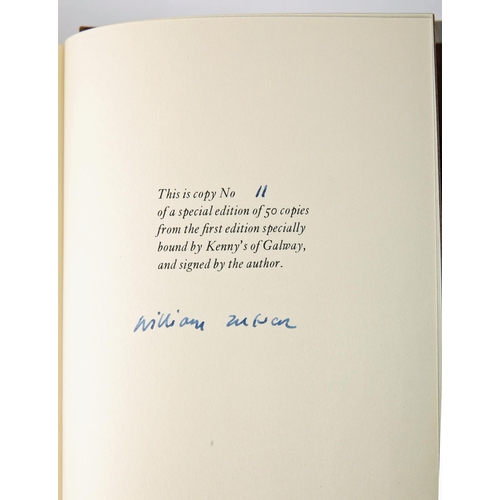 This is copy No 11
of a special edition of 50 copies
from the first edition specially
bound by Kenny's of Galway,
and signed by the author.
William